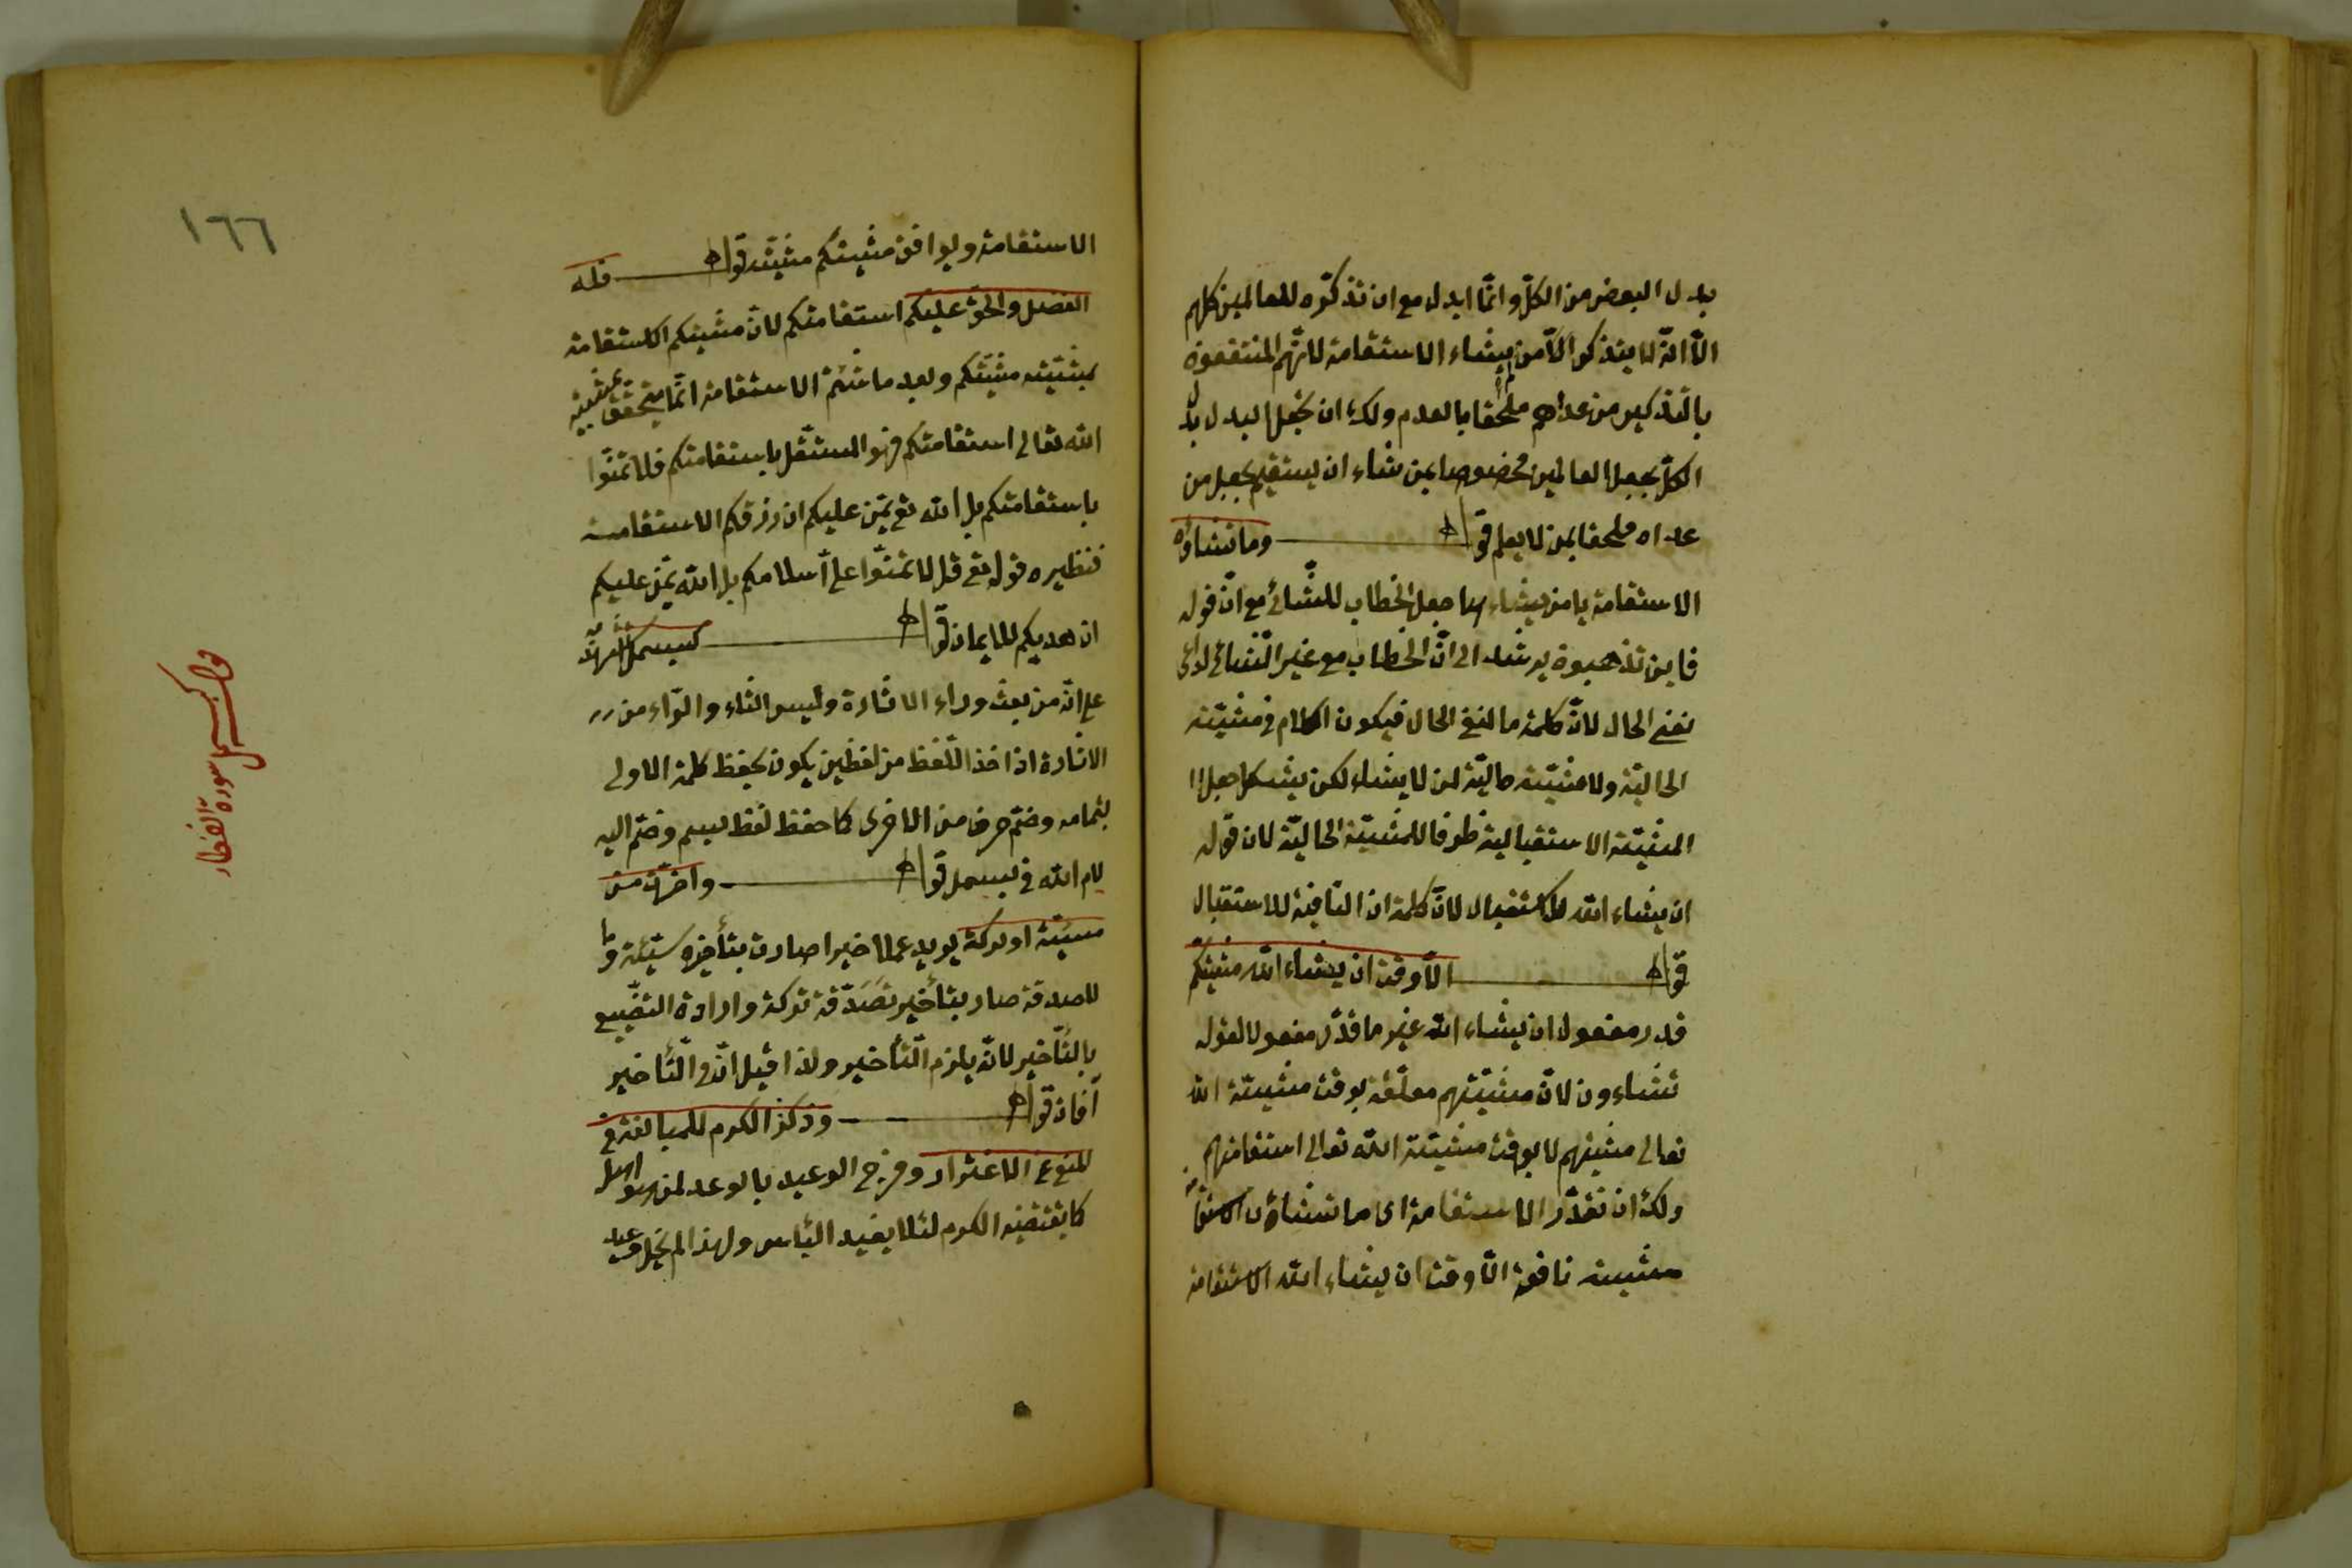 بدل البعض من الكلّ وانمّا ابدل مع ان تذكّره للعالمين كلهم
الّا انّه لا يتذكر الّا من يشاء الاستقامة لانّهم المنتفعون
بالتذكير من عداهم ملحقا بالعدم ولك ان تجعل البدل بدل
الكلّ بجعل العالمين مخصوصا بمن شاء ان يستقيم بجعل من
عداه ملحقا بمن لا يعلم قوله وما تشاؤن
الاستقامة يا من يشاء جعل الخطاب للشّائى مع انّ قوله
فاين تذهبون يرشد الى انّ الخطاب مع غير الشائى
نفى الحال لانّ كلمة ما لنفى الحال فيكون الكلام فى مشيّته
الحاليّة ولا مشيّته حاليّة لمن لا يشاء لكن يشكل جعل
المشيّة الاستقبالية ظرفا للمشيّة الحاليّة لان قوله
ان يشاء الله للاستقبال لانّ كلمة ان النّاصبة للاستقبال
قوله الّا وقت ان يشاء الله مشيتكم
قدر مفعول ان يشاء الله غير ما قدّر مفعولا لقوله
تشاءون لانّ مشيّتهم معلّقة بوقت مشيتة الله
تعالى مشيتهم لا بوقت مشيّة الله تعالى استقامتهم
ولك ان تقدّر الاستقامة اى ما تشاؤن الاستقامة
مشيته نافعة الّا وقت ان يشاء الله الاستقامة
١٦٦
الاستقامة ويوافق مشيتكم مشيّته قوله فله
الفضل والحقّ عليكم استقامتكم لانّ مشيتكم الاستقامة
بمشيّته مشيّتكم وبعد ما شئتم الاستقامة انّما يتحقق بمشيته
الله تعالى استقامتكم فهو المستقل باستقامتكم فلا تمنّوا
باستقامتكم بل الله تع يمّن عليكم ان رزقكم الاستقامة
فنظيره قوله تع قل لا تمنّوا على اسلامكم بل الله يمنّ عليكم
ان هديكم للايمان قوله كبسمل
على انّه من بعث وراء الاثارة وليس الثاء والرّاء من
الاثارة اذ اخذ اللّفظ من لفظين يكون بحفظ كلمة الاولى
بتمامه وضمّ حرف من الاخرى كما حفظ لفظ بسم وضمّ اليه
لام الله فى بسمل قوله واخرّت من
سيّئة او تركة يريد عملا خيرا صارت بتأخيره سيّئة وما
للصدقة صار بتأخير تصَدّقه تركة وارادة التضييع
بالتّأخير لانّه يلزم التّأخير ولذا قيل انّ فى التّأخير
آفات قوله وذكر الكرم للمبالغة فى
المنع عن الاغترار ومزج الوعيد بالوعد لمن
كما يقتضيه الكرم لئلا يفيد اليأس ولهذا لم يخل وعيد
قوله كبسمل سورة انفطار